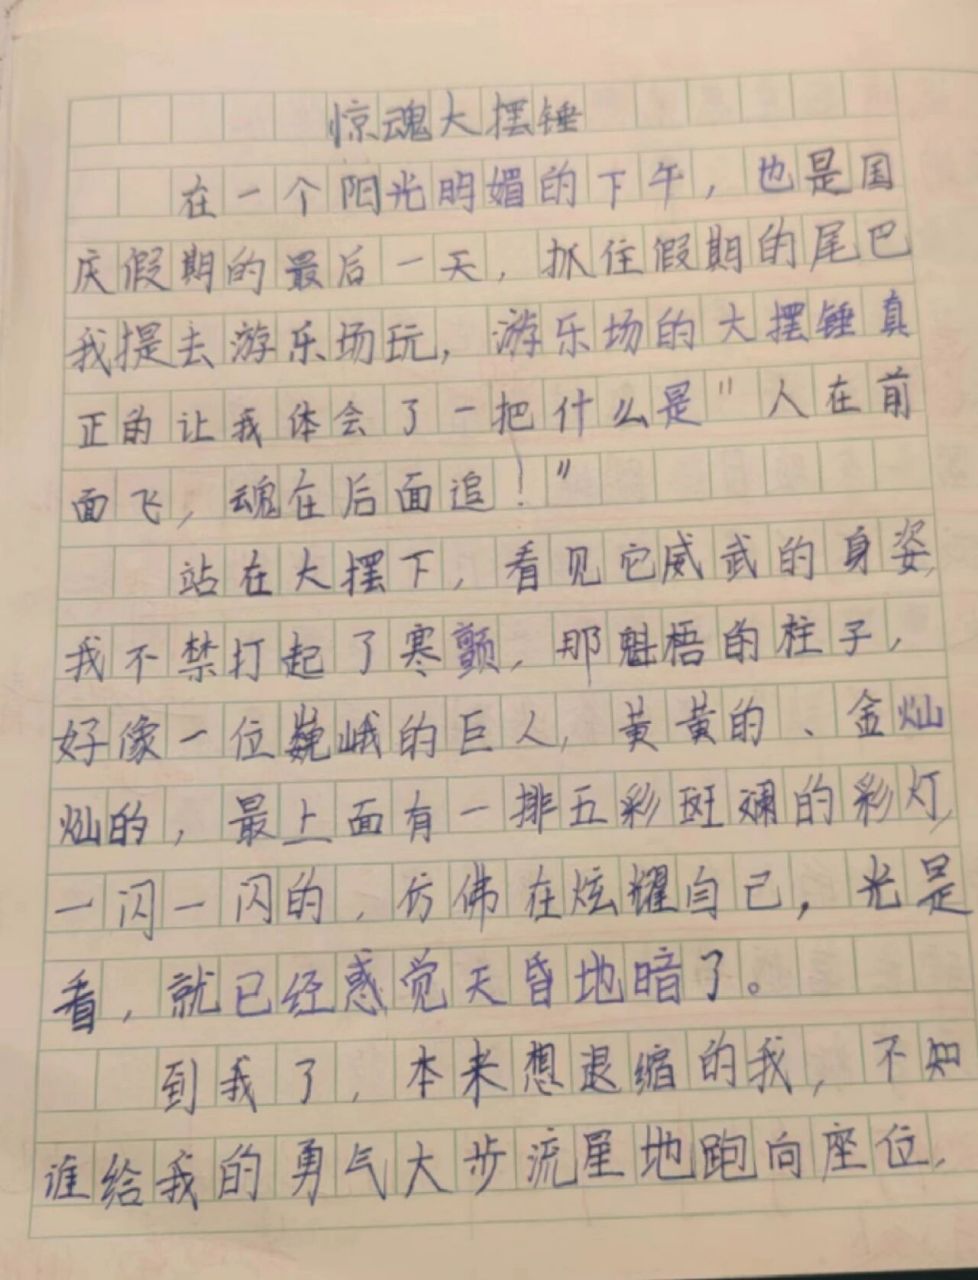 惊魂大摆锤
在一个阳光明媚的下午，也是国
庆假期的最后一天，抓住假期的尾巴
我提去游乐场玩，游乐场的大摆锤真
正的让我体会了一把什么是"人在前
面飞，魂在后面追！"
站在大摆下，看见它威武的身姿，
我不禁打起了寒颤，那魁梧的柱子，
好像一位巍峨的巨人，黄黄的、金灿
灿的，最上面有一排五彩斑斓的彩灯，
一闪一闪的，仿佛在炫耀自己，光是
看，就已经感觉天昏地暗了。
到我了，本来想退缩的我，不知
谁给我的勇气大步流星地跑向座位，